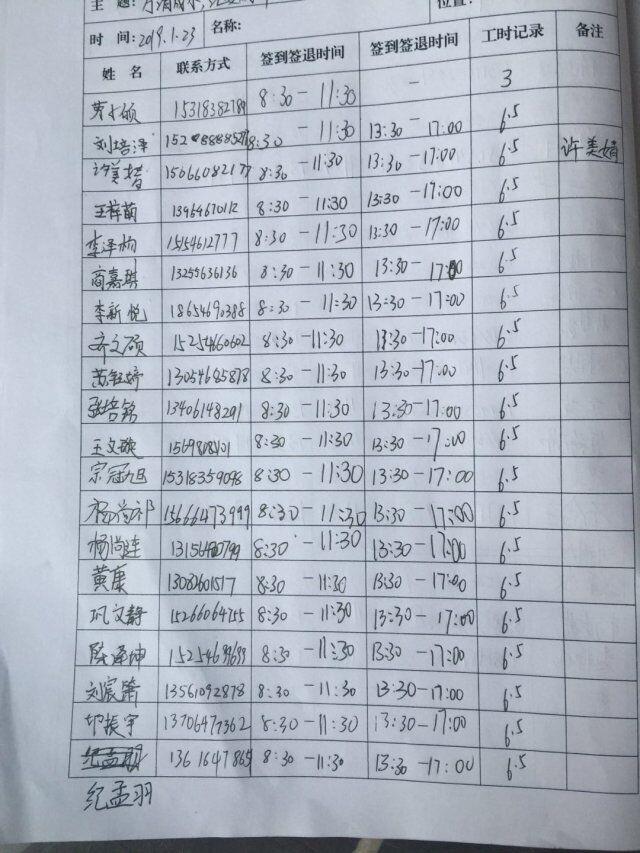 主 题:
位置:
时 间: 2019.1.23 名称:
姓 名 联系方式 签到签退时间 签到签退时间 工时记录 备注
15318382789 8:30-11:30 - 3
刘培泽 8:30-11:30 13:30-17:00 6.5
许美婧 15066082177 8:30-11:30 13:30-17:00 6.5 许美婧
王梓萌 13954670112 8:30-11:30 13:30-17:00 6.5
李泽昀 15154612777 8:30-11:30 13:30-17:00 6.5
商嘉琪 13255636136 8:30-11:30 13:30-17:00 6.5
李新悦 18654690388 8:30-11:30 13:30-17:00 6.5
齐文硕 15254660602 8:30-11:30 13:30-17:00 6.5
13054685878 8:30-11:30 13:30-17:00 6.5
张培铭 13406148291 8:30-11:30 13:30-17:00 6.5
王文璇 8:30-11:30 13:30-17:00 6.5
宗冠旭 15318359098 8:30-11:30 13:30-17:00 6.5
杨尚祁 15666473999 8:30-11:30 13:30-17:00 6.5
杨尚涟 8:30-11:30 13:30-17:00 6.5
黄康 8:30-11:30 13:30-17:00 6.5
巩文静 15266064755 8:30-11:30 13:30-17:00 6.5
陈泽坤 15254699699 8:30-11:30 13:30-17:00 6.5
刘宸箫 13561092878 8:30-11:30 13:30-17:00 6.5
振宇 13706477362 8:30-11:30 13:30-17:00 6.5
纪孟羽 13616647865 8:30-11:30 13:30-17:00 6.5
纪孟羽